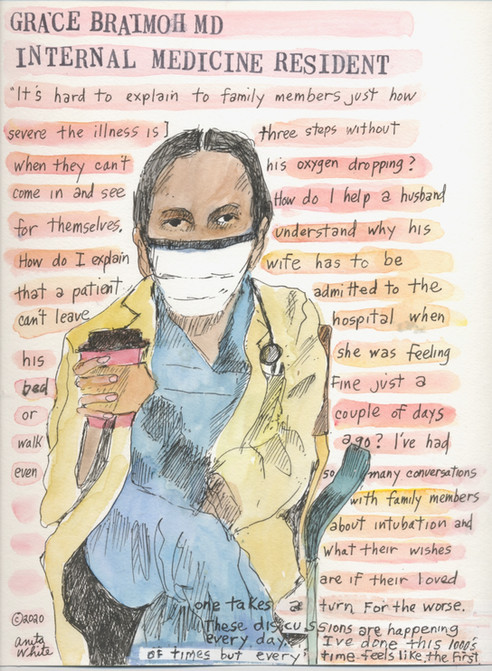 GRACE BRAIMOH MD
INTERNAL MEDICINE RESIDENT
"It's hard to explain to family members just how
severe the illness is]
when they can't
come in and see
for themselves.
How do I explain
that a patient
can't leave
his
bed
or
walk
even
three steps without
his oxygen dropping?
How do I help a husband
understand why his
wife has to be
admitted to the
hospital when
she was feeling
fine just a
couple of days
ago? I've had
so many conversations
with family members
about intubation and
what their wishes
are if their loved
one takes a turn for the worse.
These discussions are happening
every day. I've done this 1000's
of times but every time feels like the first
©2020
anita
white